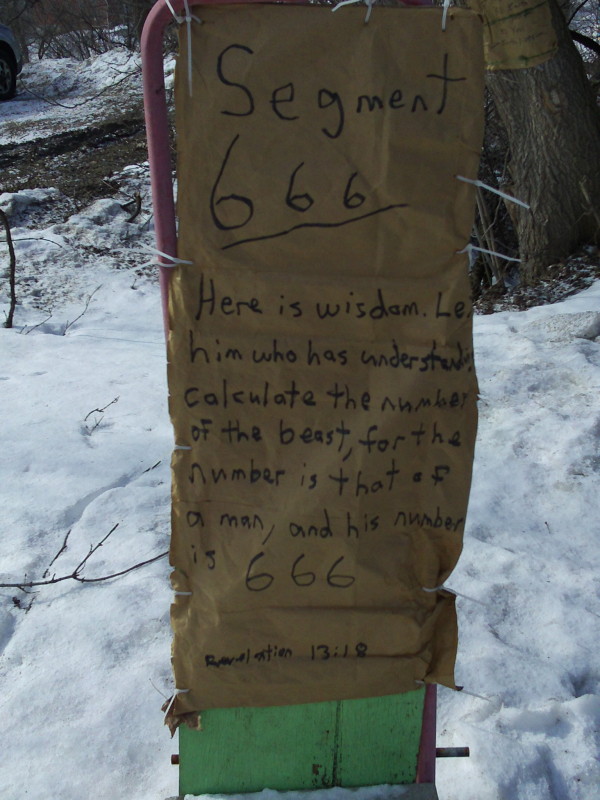 Segment
666
Here is wisdom. Le
him who has understandin
calculate the number
of the beast, for the
number is that of
a man, and his number
is 666
Revelation 13:18